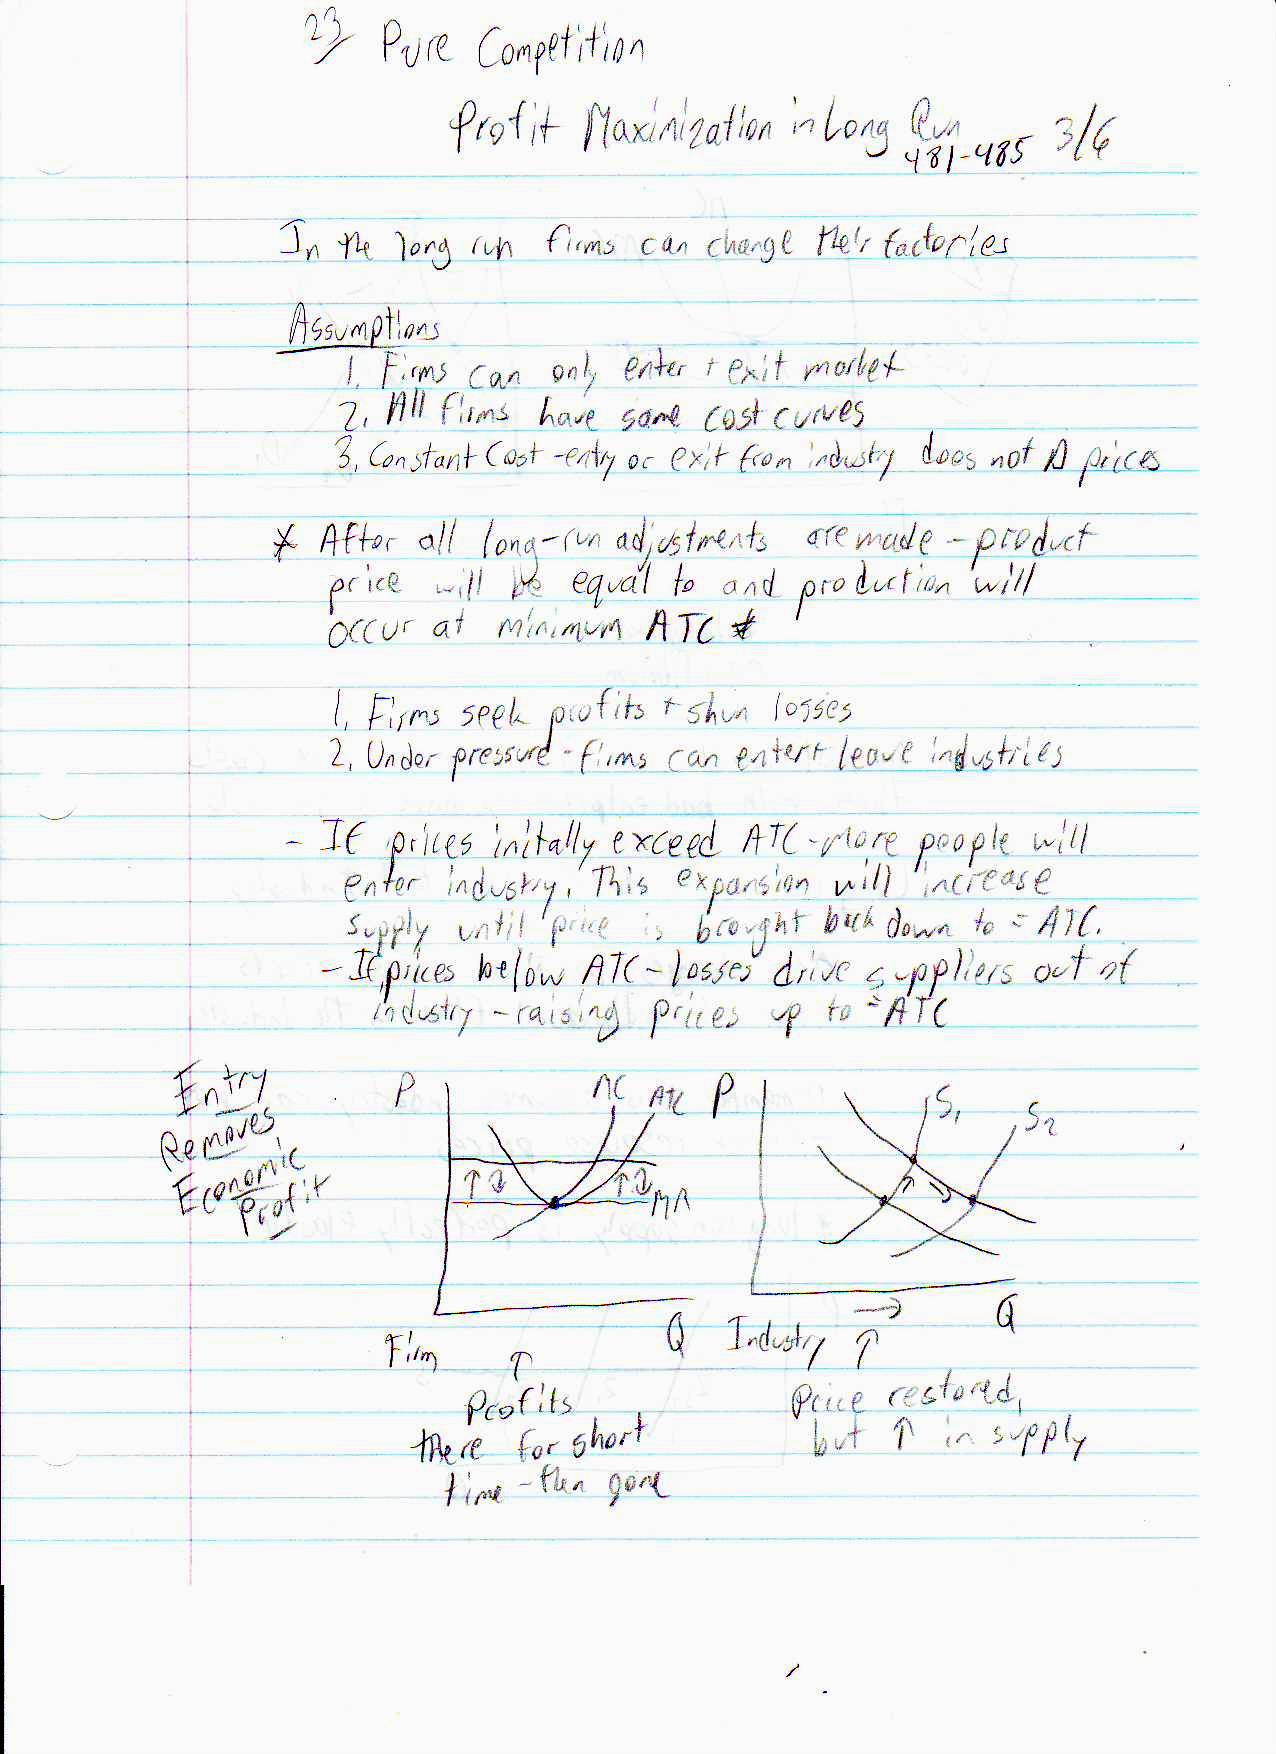 23/ Pure Competition
Profit Maximization in Long Run
481-485 3/6
In the long run firms can change their factories
Assumptions
1. Firms can only enter + exit market
2. All firms have same cost curves
3. Constant Cost - entry or exit from industry does not Δ prices
* After all long-run adjustments are made - product
price will be equal to and production will
occur at minimum ATC *
1. Firms seek profits + shun losses
2. Under pressure - firms can enter + leave industries
- If prices initally exceed ATC - more people will
enter industry. This expansion will increase
supply until price is brought back down to = ATC.
- If prices below ATC - losses drive suppliers out of
industry - raising prices up to = ATC
Entry
Removes
Economic
Profit
P MC ATC
↑ ↓ ↑ ↓ MR
Q
Firm ↑
Profits
there for short
time - then gone
P S1 S2
↑ →
→ Q
Industry ↑
Price restored,
but ↑ in supply